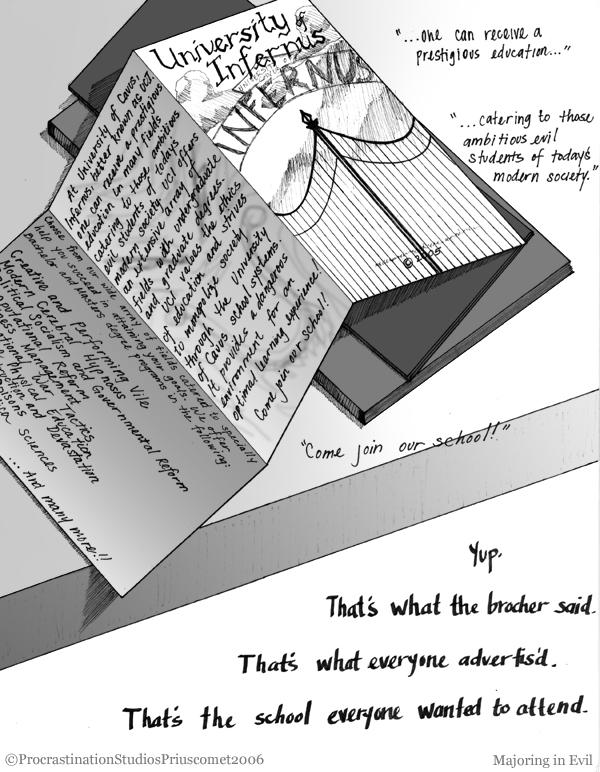 University of
Infernus
INFERNUS
©2005
"...one can receive a
prestigious education..."
"...catering to those
ambitious evil
students of today's
modern society."
At University of Cavus,
Infernus, better known as UCI,
one can receive a prestigious
education in many fields
catering to those ambitious
evil students of today's
modern society. UCI offers
an extensive array of
fields with undergraduate
and graduate degrees.
UCI values the ethics
of education and strives
to monopolize society
through the University
of Cavus school systems.
It provides a dangerous
environment for an
optimal learning experience.
Come join our school!
Choose from our wide array of fields
help you succeed in training your goals. We offer
bachelor and masters degree programs in the following:
Creative and Performing Vile
Modern Cerebral Hypnosis
Political Socialism and Governmental Reform
Management
War Tactics
Physical Education
and Devastation
Poisons
Sciences
...And many more!!
"Come join our school!!"
Yup.
That's what the brocher said.
That's what everyone advertis'd.
That's the school everyone wanted to attend.
©ProcrastinationStudiosPriuscomet2006
Majoring in Evil